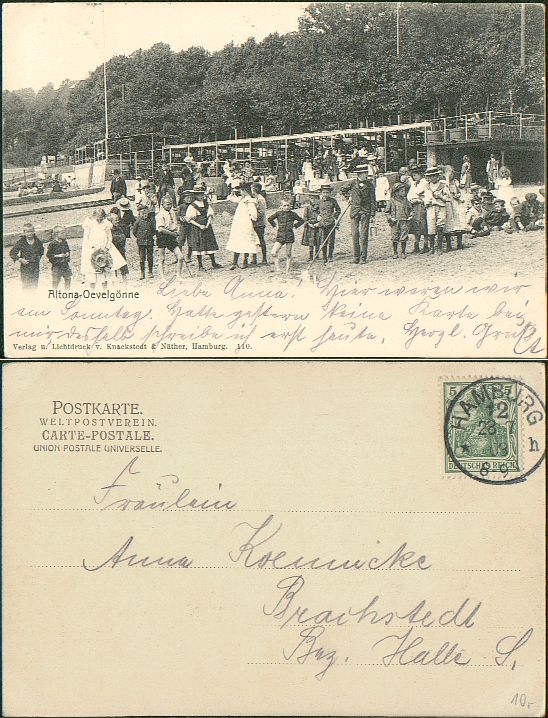 Altona-Oevelgönne
Liebe Anna! Hier waren wir
am Sonntag. Hatte gestern keine Karte bei
mir deshalb schreibe ich erst heute. Herzl. Gruß
Verlag u. Lichtdruck v. Knackstedt & Näther, Hamburg. 110.
POSTKARTE.
WELTPOSTVEREIN.
CARTE-POSTALE.
UNION POSTALE UNIVERSELLE.
5 5
DEUTSCHES REICH
HAMBURG
2
h
8-9
Fräulein
Anna Koennicke
Brachstedt
Bez. Halle S.
10.-